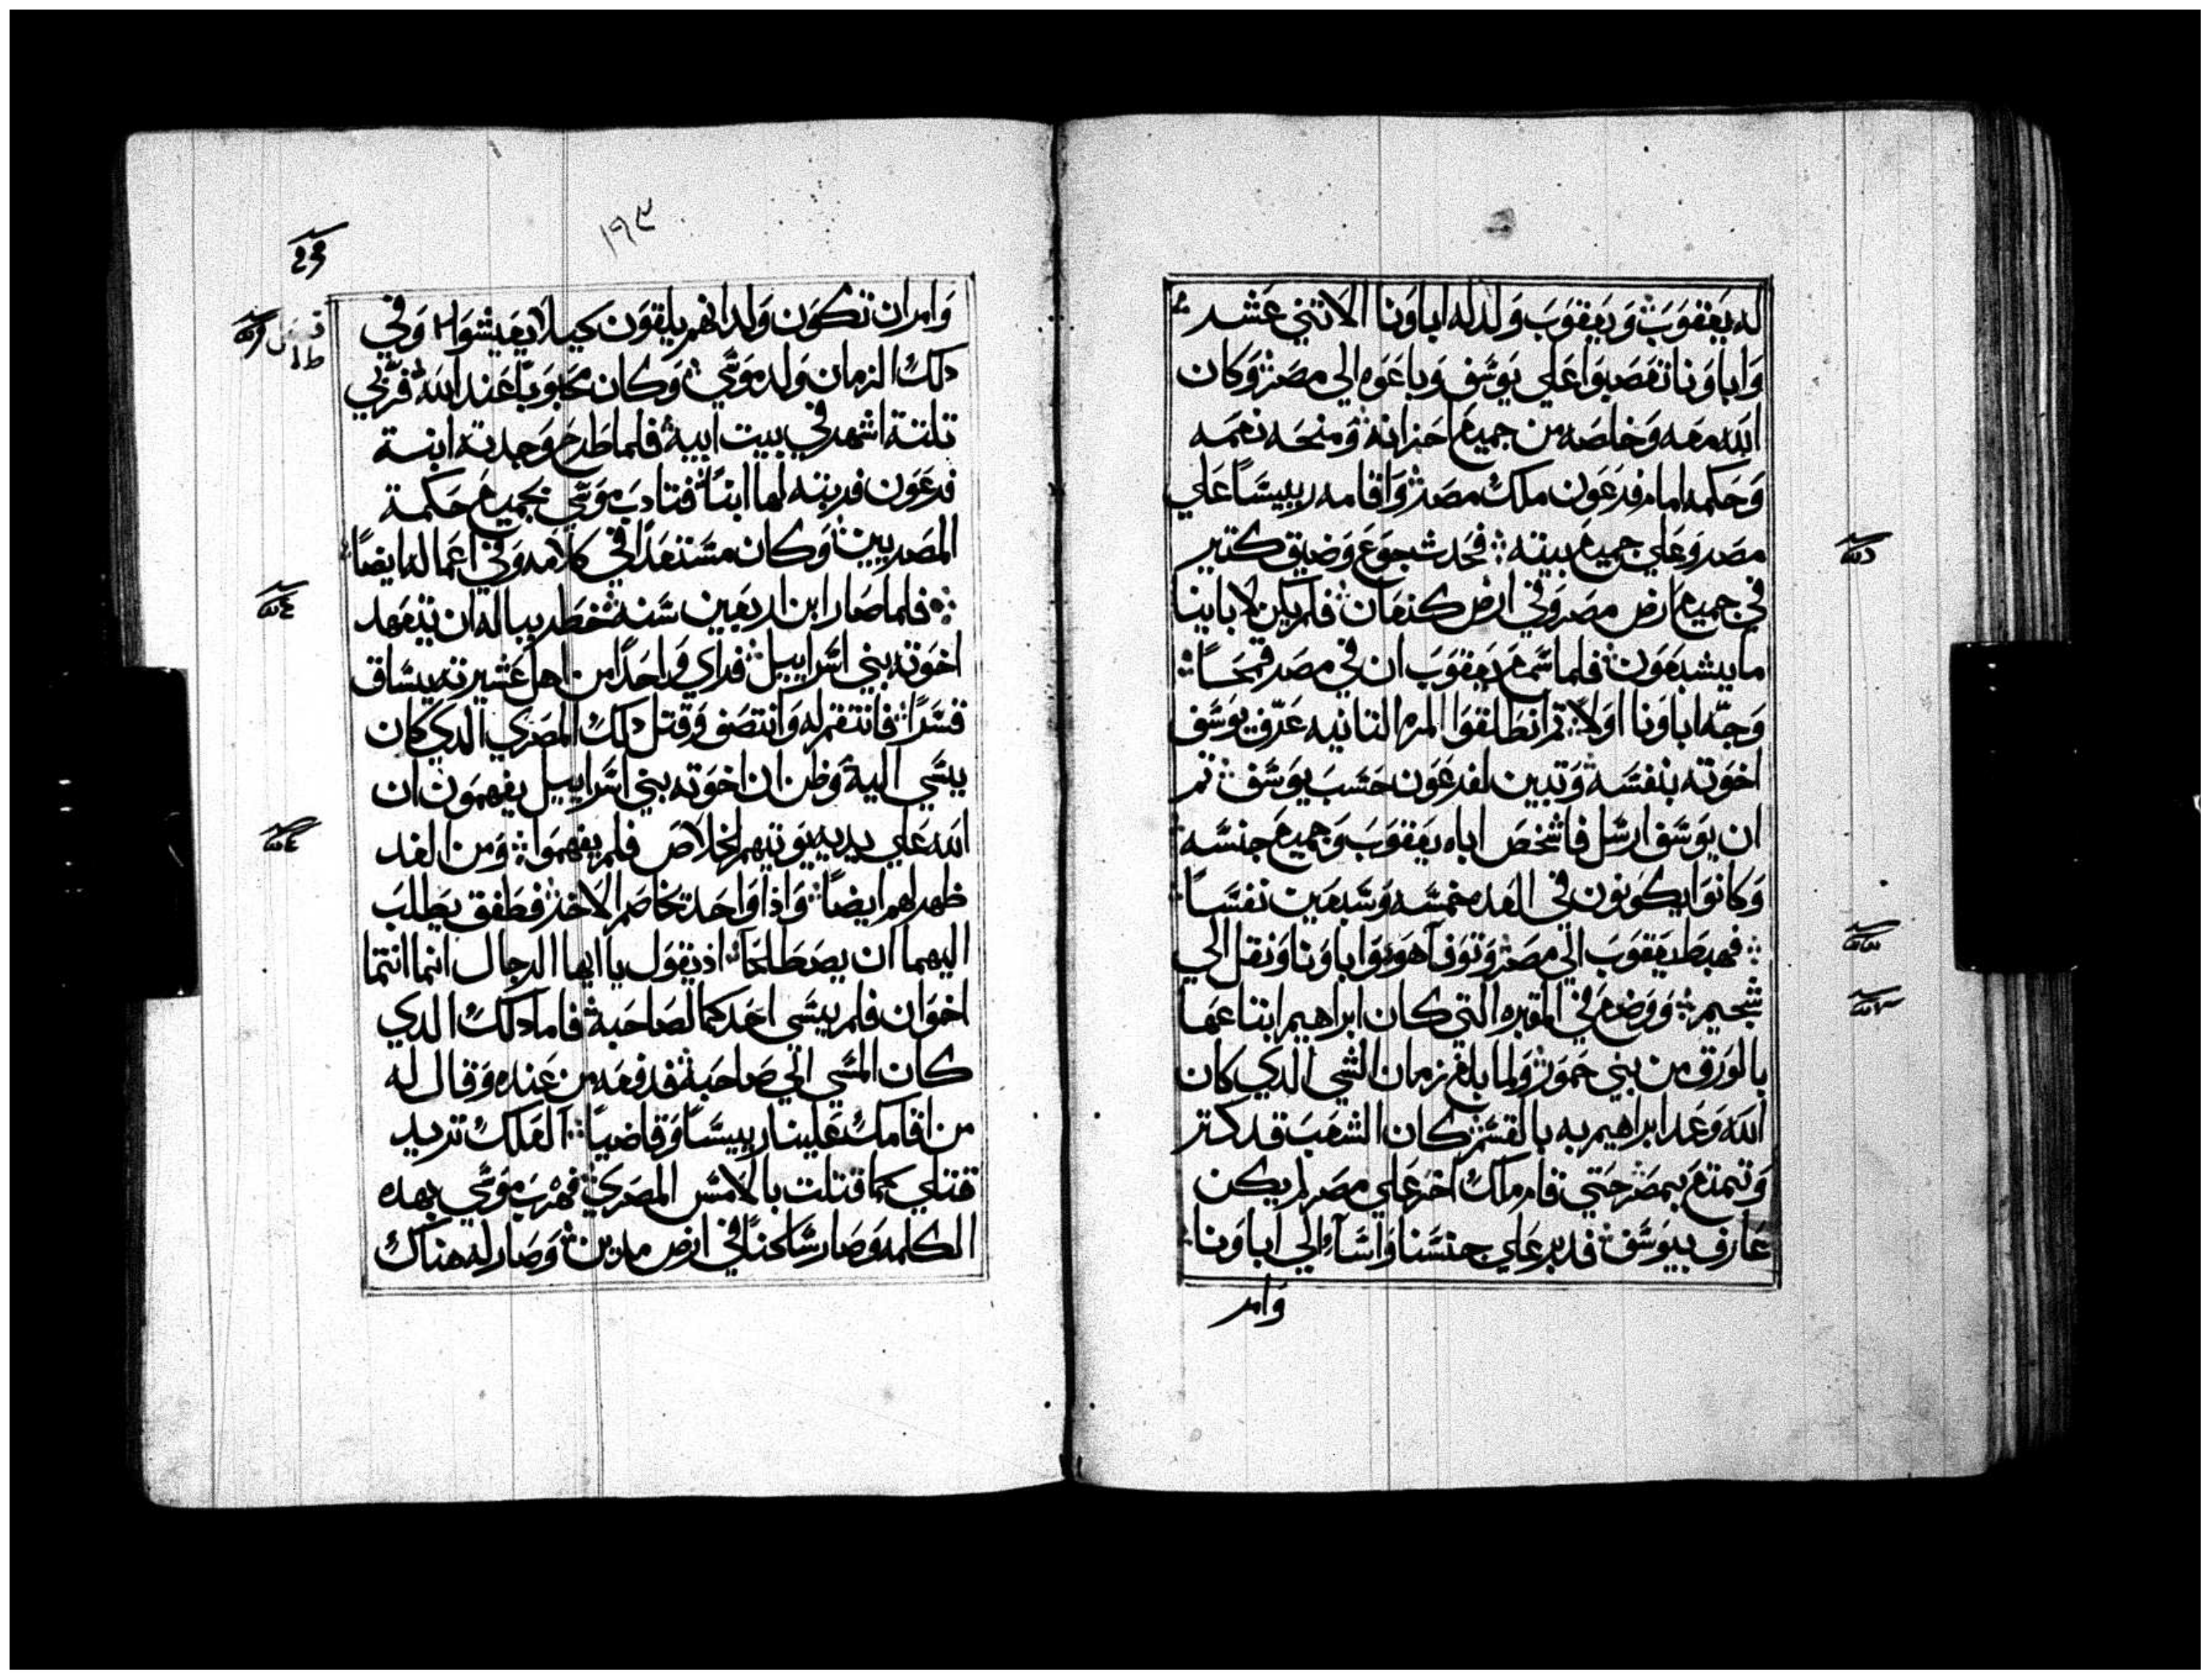 له يعقوب ويعقوب ولد له اباونا الاتني عشر
واباونا تعصبوا علي يوسف وباعوه الي مصر وكان
الله معه وخلصه من جميع احزانه ومنحه نعمه
وحكمه امام فرعون ملك مصر واقامه رييسًا علي
مصر وعلي جميع بيته فحدث جوع وضيق كتير
في جميع ارض مصر وفي ارض كنعان فلم يكن لاباينا
ما يشبعون فلما سمع يعقوب ان في مصر قمحًا
وجه اباونا اولًا تم انطلقوا المره التانيه عرف يوسف
اخوته بنفسه وتبين لفرعون حسب يوسف تم
ان يوسف ارسل فاشخص اباه يعقوب وجميع جنسه
وكانوا يكونون في العده خمسه وسبعين نفسًا
فهبط يعقوب الي مصر وتوفا هو واباونا ونقل الي
شحيم ووضع في المقبره التي كان ابراهيم ابتاعها
بالورق من بني حمور ولما بلغ زمان الشي الدي كان
الله وعد ابراهيم به بالقسم كان الشعب قد كتر
وتمنع بمصر حتي قام ملك اخر علي مصر لم يكن
عارف بيوسف فدبر علي جنسنا واسآء الي اباونا
وامر
١٩٣
وامر ان تكون ولدانهم يلقون كيلا يعيشوا وفي
دلك الزمان ولد موسي وكان محبوبًا عند الله فربي
تلتة اشهر في بيت ابيه فلما طرح وجدته ابنة
فرعون فربته لها ابنًا فتادب موسي بجميع حكمة
المصريين وكان مستعدًا في كلامه وفي اعماله ايضًا
فلما صار ابن اربعين سنه خطر بباله ان يتعهد
اخوته بني اسراييل فراي واحدًا من اهل عشيرته يساق
قسرًا فانتقم له وانتصف وقتل دلك المصري الدي كان
يسي اليه وظن ان اخوته بني اسراييل يفهمون ان
الله علي يديه يوتيهم الخلاص فلم يفهموا ومن الغد
ظهر لهم ايضًا واذا واحد تخاصم الاخر فطفق يطلب
اليهما ان يصطلحا اذ يقول يا ايها الرجال انما انتما
اخوان فلم يسي احدكما لصاحبه فاما دلك الدي
كان المسي الي صاحبه فدفعه من عنده وقال له
من اقامك علينا رييسًا وقاضيًا العلك تريد
قتلي كما قتلت بالامس المصري فهرب موسي بهده
الكلمه وصار ساكنًا في ارض مدين وصار له هناك